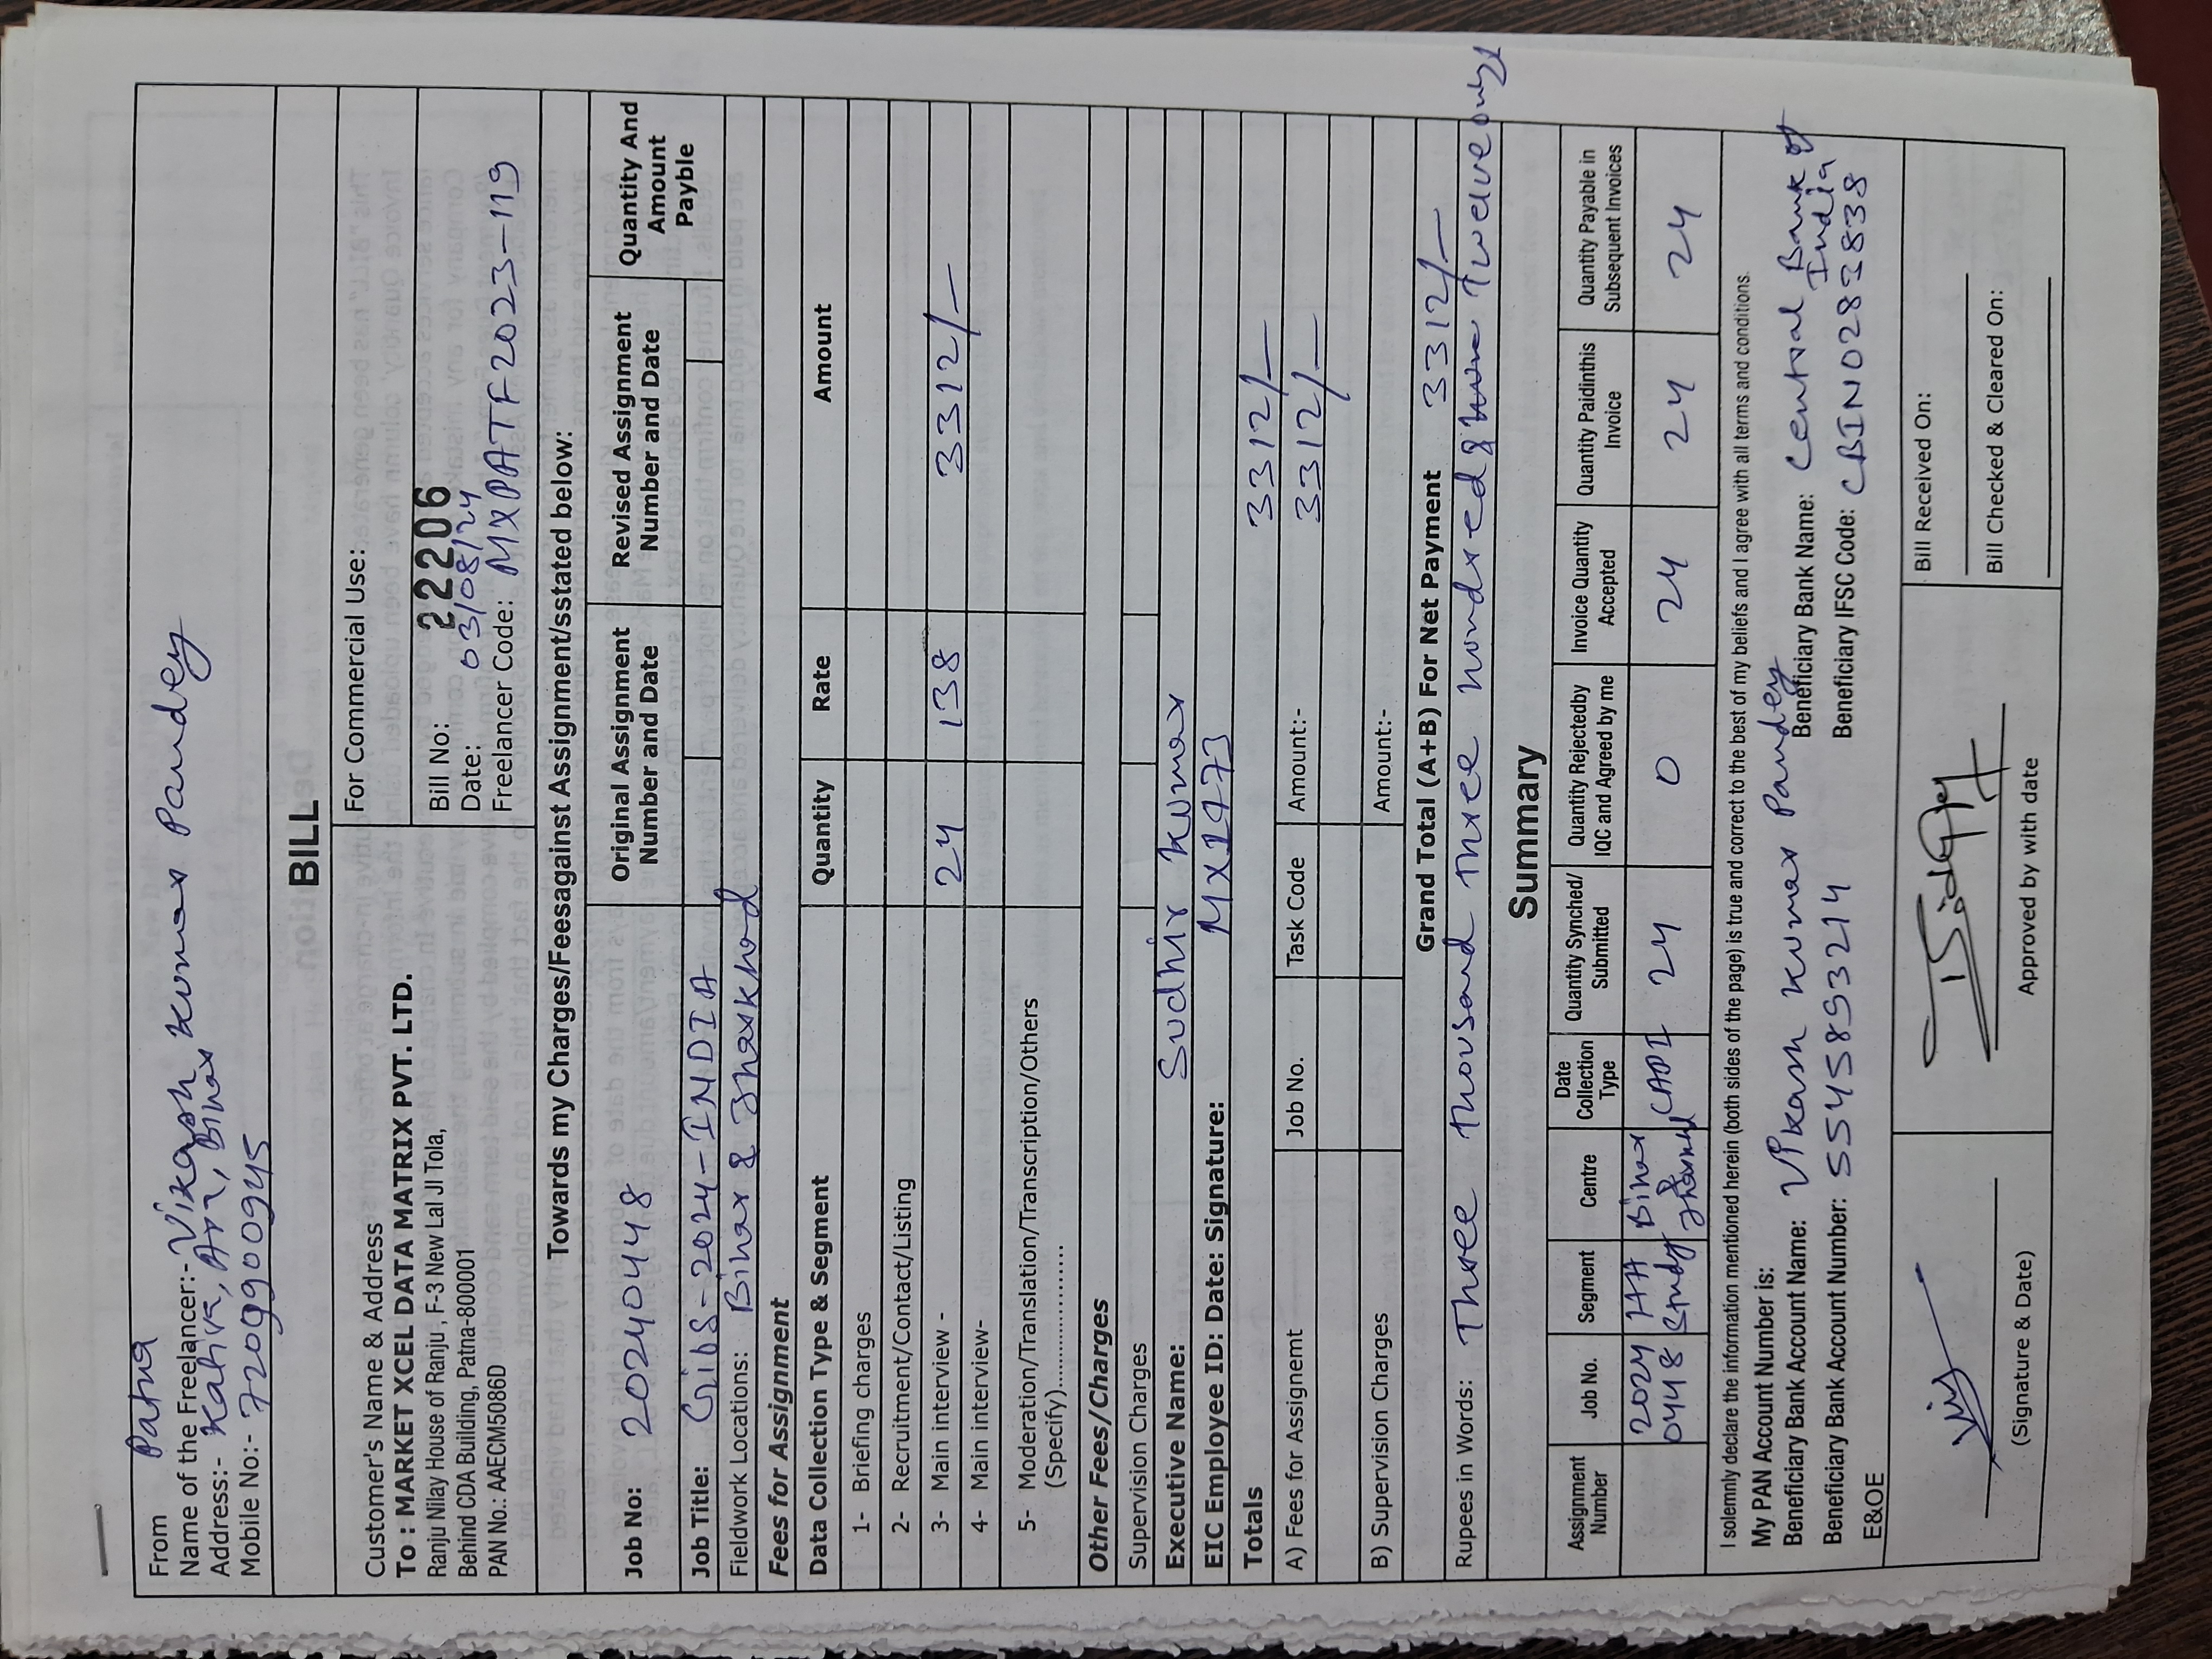 Patna
From
Name of the Freelancer:- Vikash Kumar Pandey
Address:- Kahiva, Arra, Bihar
Mobile No:- 7209900945
BILL
Customer's Name & Address
To : MARKET XCEL DATA MATRIX PVT. LTD.
Ranju Nilay House of Ranju , F-3 New Lal JI Tola,
Behind CDA Building, Patna-800001
PAN No.: AAECM5086D
For Commercial Use:
Bill No: 22206
Date: 03/08/24
Freelancer Code: MXPATF2023-119
Towards my Charges/Feesagainst Assignment/sstated below:
Job No: 20240448
Original Assignment Number and Date
Revised Assignment Number and Date
Quantity And Amount Payble
Job Title: GibS-2024-INDIA
Fieldwork Locations: Bihar & Jharkhad
Fees for Assignment
Data Collection Type & Segment Quantity Rate Amount
1- Briefing charges
2- Recruitment/Contact/Listing
3- Main interview - 24 138 3312/-
4- Main interview-
5- Moderation/Translation/Transcription/Others
(Specify)......................
Other Fees/Charges
Supervision Charges
Executive Name: Sudhir Kumar
EIC Employee ID: Date: Signature: MX1473
Totals 3312/-
A) Fees for Assignemt Job No. Task Code Amount:- 3312/-
B) Supervision Charges Amount:-
Grand Total (A+B) For Net Payment 3312/-
Rupees in Words: Three Thousand Three Hundred & Twelve only
Summary
Assignment Number Job No. Segment Centre Date Collection Type Quantity Synched/ Submitted Quantity Rejectedby IQC and Agreed by me Invoice Quantity Accepted Quantity Paidinthis Invoice Quantity Payable in Subsequent Invoices
2024 0448 HH Study Bihar & Jharkhand CAPI 24 0 24 24 24
I solemnly declare the information mentioned herein (both sides of the page) is true and correct to the best of my beliefs and I agree with all terms and conditions.
My PAN Account Number is:
Beneficiary Bank Account Name: Vikash Kumar Pandey
Beneficiary Bank Name: Central Bank of India
Beneficiary Bank Account Number: 5545893214
Beneficiary IFSC Code: CBIN0283838
E&OE
(Signature & Date)
Approved by with date
Bill Received On:
Bill Checked & Cleared On: